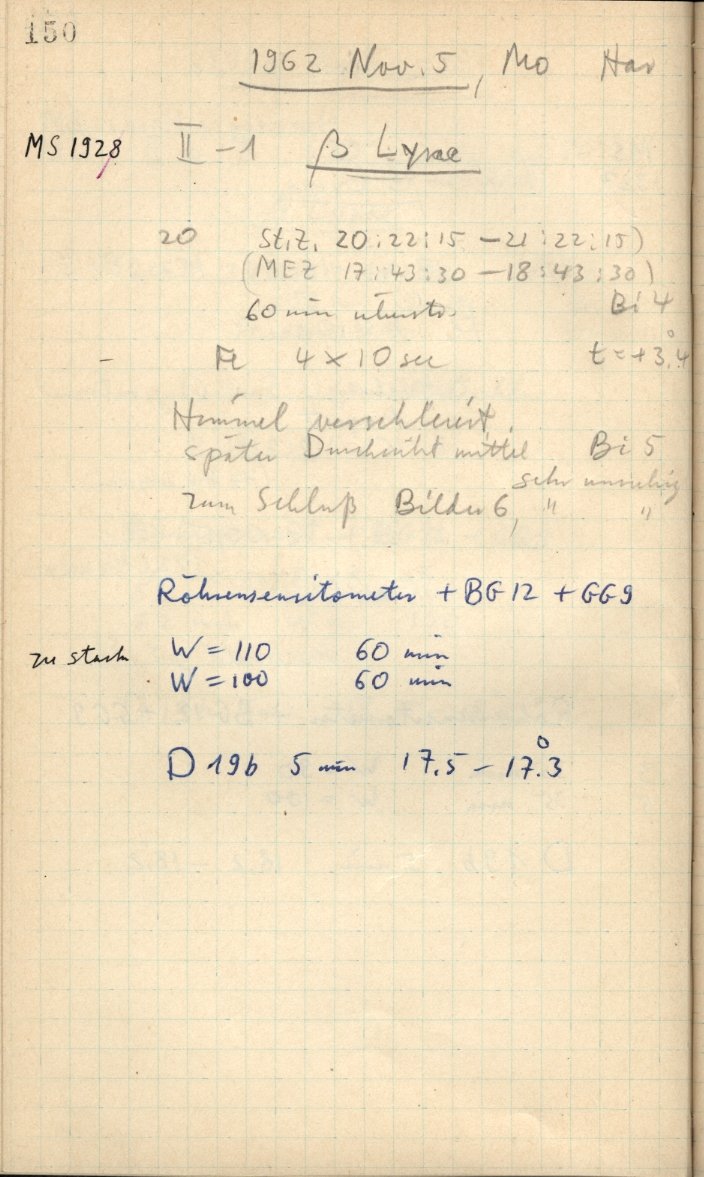 150
1962 Nov. 5, Mo Hav
MS 1928 II – 1 β Lyrae
20 St.Z. 20:22:15 – 21:22:15)
(MEZ 17:43:30 – 18:43:30)
60 min Bi 4
– Fe 4 × 10 sec t = +3°.4
Himmel verschleiert.
später Durchsicht mittel Bi 5
sehr unruhig
zum Schluß Bilder 6, " "
Röhrensensitometer + BG 12 + GG 9
zu stark W = 110 60 min
W = 100 60 min
D 19b 5 min 17.5 – 17°.3